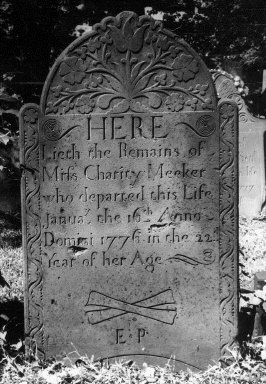 HERE
Lieth the Remains of
Miſs Charity Meeker
who departed this Life
Janua.y the 16.th Anno
Domini 1776 in the 22.d
Year of her Age
E P